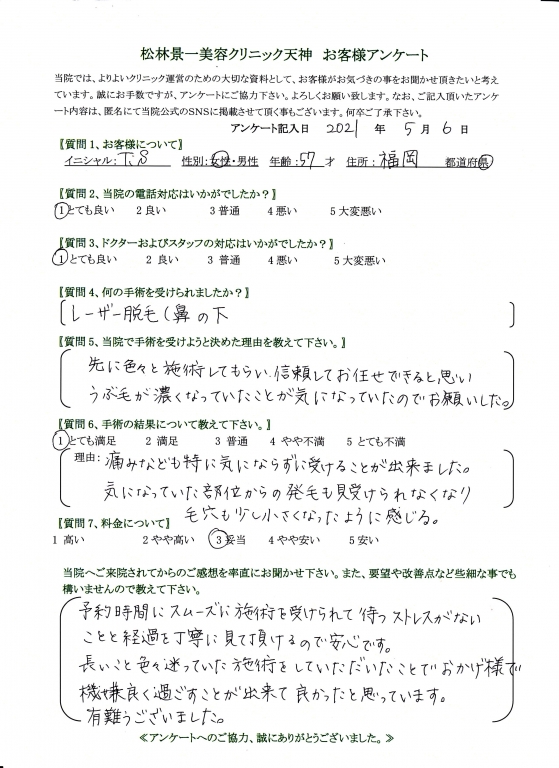 松林景一美容クリニック天神　お客様アンケート
当院では、よりよいクリニック運営のための大切な資料として、お客様がお気づきの事をお聞かせ頂きたいと考え
ています。誠にお手数ですが、アンケートにご協力下さい。よろしくお願い致します。なお、ご記入頂いたアンケ
ート内容は、匿名にて当院公式のSNSに掲載させて頂く事もございます。何卒ご了承下さい。
アンケート記入日　2021　年　5　月　6　日
〖質問1、お客様について〗
イニシャル：T.S　性別：女性・男性　年齢：57　才　住所：福岡　都道府県
〖質問2、当院の電話対応はいかがでしたか？〗
1 とても良い　2 良い　3 普通　4 悪い　5 大変悪い
〖質問3、ドクターおよびスタッフの対応はいかがでしたか？〗
1 とても良い　2 良い　3 普通　4 悪い　5 大変悪い
〖質問4、何の手術を受けられましたか？〗
レーザー脱毛（鼻の下
〖質問5、当院で手術を受けようと決めた理由を教えて下さい。〗
先に色々と施術してもらい、信頼してお任せできると思い
うぶ毛が濃くなっていたことが気になっていたのでお願いしました。
〖質問6、手術の結果について教えて下さい。〗
1 とても満足　2 満足　3 普通　4 やや不満　5 とても不満
理由：痛みなども特に気にならずに受けることが出来ました。
気になっていた部位からの発毛も見受けられなくなり
毛穴も少し小さくなったように感じる。
〖質問7、料金について〗
1 高い　2 やや高い　3 妥当　4 やや安い　5 安い
当院へご来院されてからのご感想を率直にお聞かせ下さい。また、要望や改善点など些細な事でも
構いませんので教えて下さい。
予約時間にスムーズに施術を受けられて待つストレスがない
ことと経過を丁寧に見て頂けるので安心です。
長いこと色々迷っていた施術をしていただいたことでおかげ様で
機嫌良く過ごすことが出来て良かったと思っています。
有難うございました。
≪アンケートへのご協力、誠にありがとうございました。≫